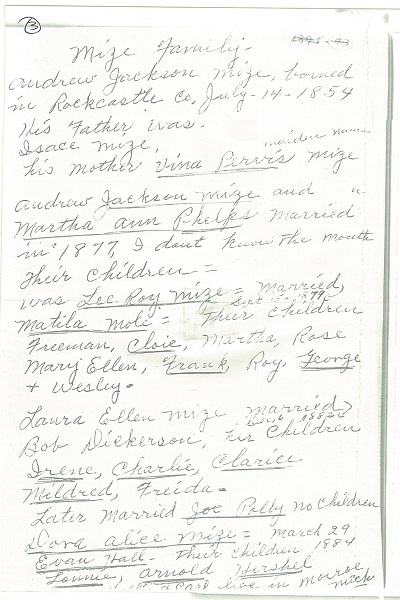 3
Mize Family -
Andrew Jackson Mize, borned
in Rockcastle Co, July - 14 - 1854
His Father was.
Isace Mize,
maiden name
his mother Vina Pervis Mize
Andrew Jackson Mize and
Martha Ann Phelps Married
in 1877, I dont know the month
Their Children =
was Lee Roy Mize = Married,
Matila Mole = Their Children
Freeman, Cloie, Martha, Rose
Mary Ellen, Frank, Roy, George
+ Wesley -
Laura Ellen Mize Married
Bob Dickerson, Children
Irene, Charlie, Clarice
Mildred, Freida -
Later Married Joe Polly no Children
Dora Alice Mize = March 29
1884
Evan Hall - Their Children
Lonnie, Arnold Hershel
live in Monroe
Mich